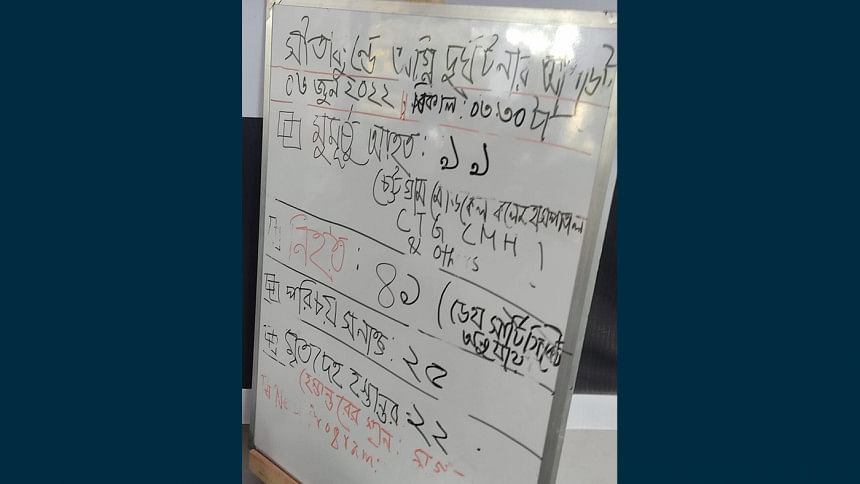 সীতাকুন্ডে অগ্নি দুর্ঘটনার আপডেট
০৬ জুন ২০২২ বিকাল: ০৩:৩০ টা
মুমূর্ষু আহত: ১১
চট্টগ্রাম মেডিকেল কলেজ হাসপাতাল
CTG CMH
& others
নিহত: ৪১ (ডেথ সার্টিফিকেট
অনুযায়ী
পরিচয় সনাক্ত: ২৫
মৃতদেহ হস্তান্তর: ২২
হস্তান্তরের
Program: